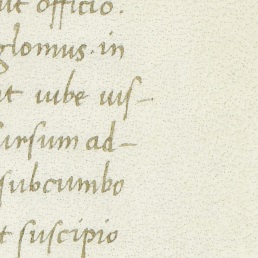 ut officio.
glomus. in
ut iube uis-
ursum ad-
subcumbo
t suscipio